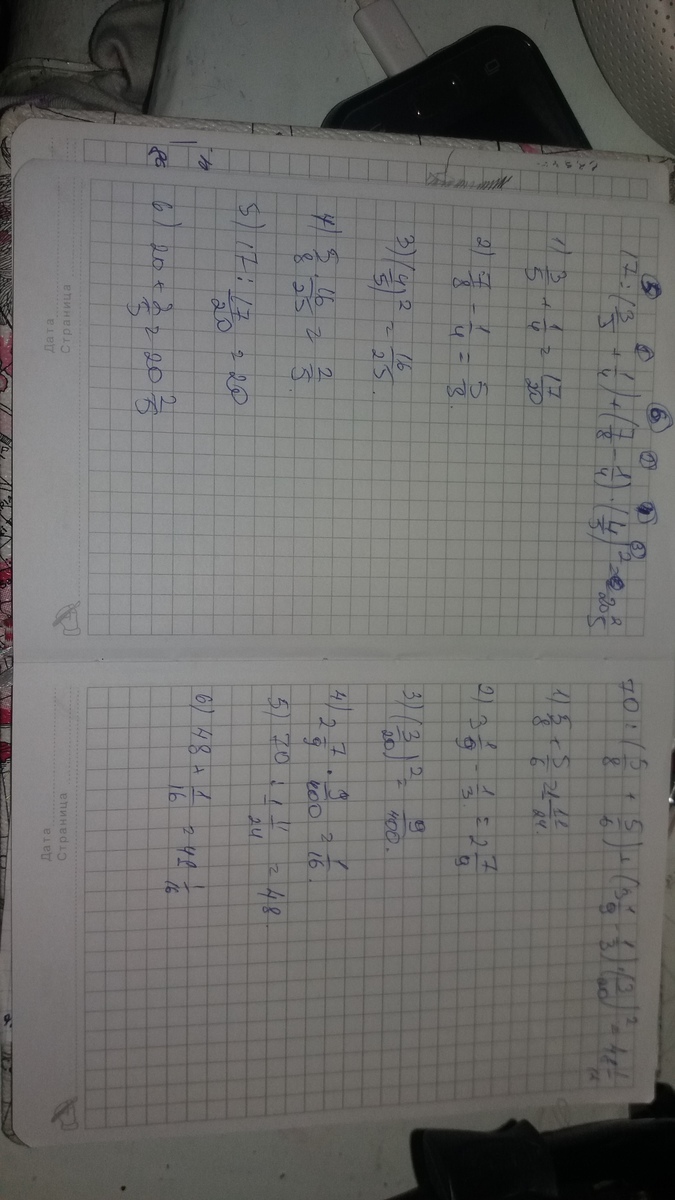 17 : (3/5 + 1/4) + (7/8 - 1/4) · (4/5)² = 20 2/5
1) 3/5 + 1/4 = 17/20
2) 7/8 - 1/4 = 5/8.
3) (4/5)² = 16/25.
4) 5/8 · 16/25 = 2/5.
5) 17 : 17/20 = 20
6) 20 + 2/5 = 20 2/5
Дата
Страница
70 : (5/8 + 5/6) + (3 1/9 - 1/3) · (3/20)² = 48 1/16
1) 5/8 + 5/6 = 1 11/24.
2) 3 1/9 - 1/3 = 2 7/9
3) (3/20)² = 9/400.
4) 2 7/9 · 9/400 = 1/16.
5) 70 : 1 11/24 = 48
6) 48 + 1/16 = 48 1/16
Дата
Страница